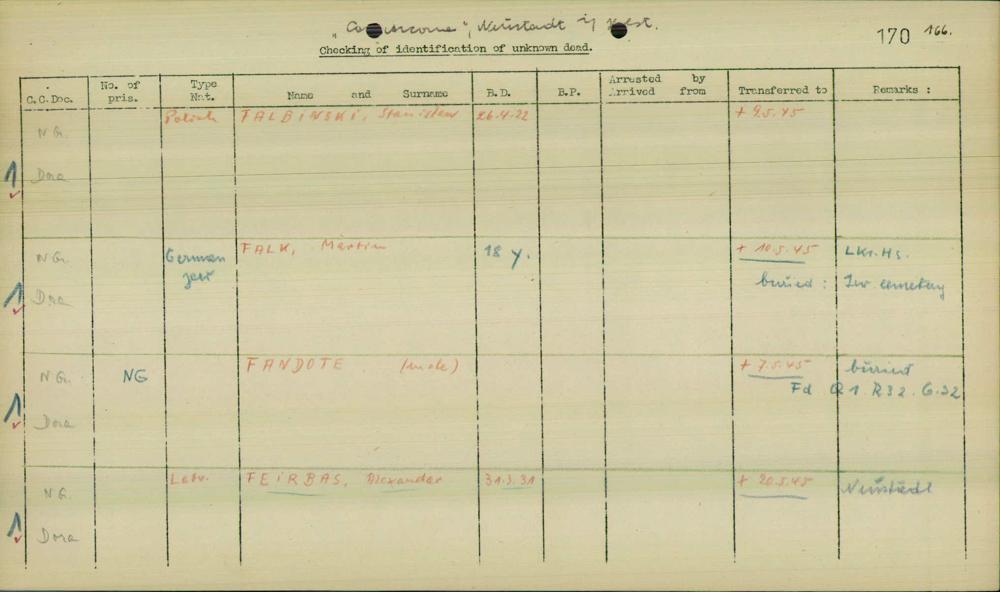 Neustadt i/ Holst.
170 166.
Checking of identification of unknown dead.
C.C.Doc. No. of pris. Type Nat. Name and Surname B.D. B.P. Arrested by Arrived from Transferred to Remarks :
Polish FALBINSKI, Stanislaw 26.4.22 + 9.5.45
NG.
1 Dora
NG. German FALK, Martin 18 y. + 10.5.45 LKr. Hs.
Jew buried : Jew. cemetary
1 Dora
NG. NG FANDOTE (male) + 7.5.45 buried
Fd Q 1. R32. G.32
1 Dora
Latv. FEIRBAS, Alexander 31.3.31 + 20.5.45 Neustadt
NG.
1 Dora